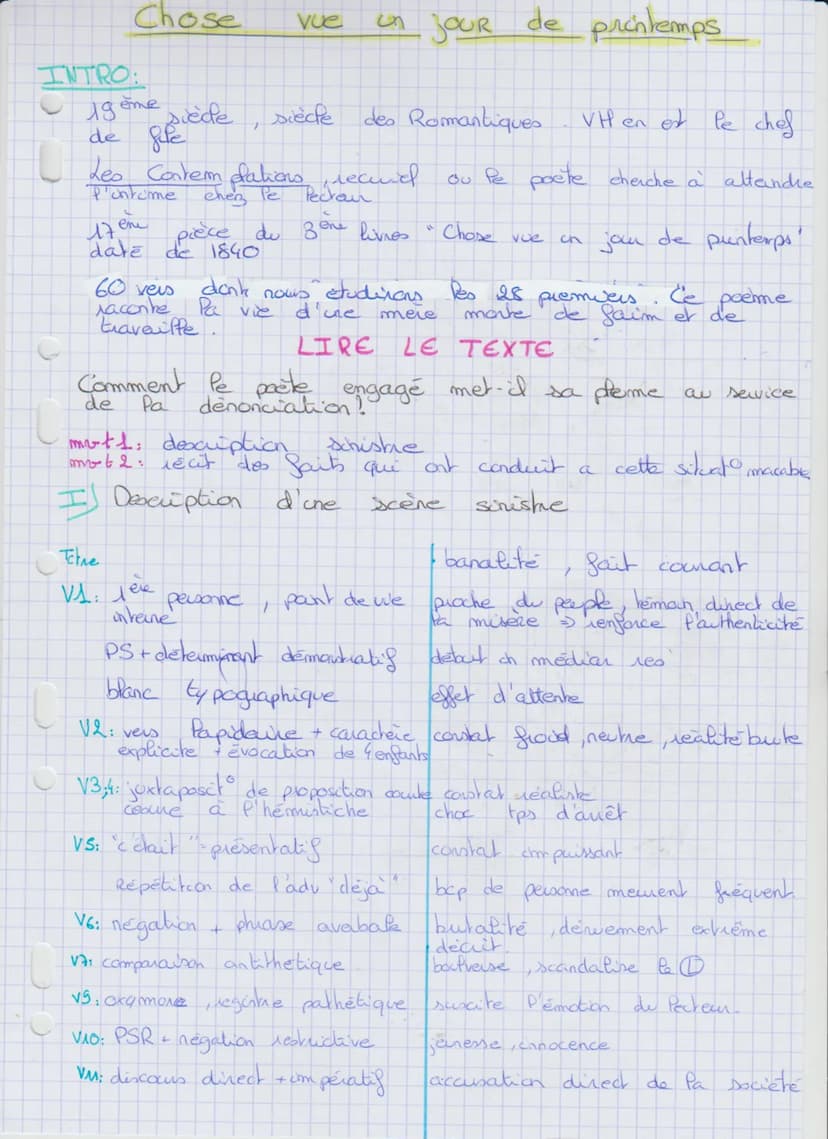 Chose vue un jour de printemps
INTRO:
19ème siècle, siècle des Romantiques. VH en et le chef
de file
Les Contemplations, recueil ou le poète cherche à atteindre
l'intime chez le lecteur
17ème pièce du 3ème livres "Chose vue un jour de printemps"
daté de 1840
60 vers dont nous étudirons les 28 premiers. Ce poème
raconte la vie d'une mère morte de faim et de
travaille.
LIRE LE TEXTE
Comment le poète engagé met-il sa plume au service
de la dénonciation!
mvt1: description sinistre
mvt2: récit des faits qui ont conduit a cette situat° macabre
I) Description d'une scène sinistre
Titre banalité, fait courant
V1: 1ère personne, point de vue proche du peuple, témoin direct de
interne la misère => renforce l'authenticité
PS + déterminant démonstratif début in médias res
blanc typographique effet d'attente
V2: vers lapidaire + caractère constat froid, neutre, réalité brute
explicite + évocation de 4 enfants
V3,4: juxtaposit° de proposition courte constat réaliste
césure à l'hémistiche choc tps d'arrêt
V5: "c'était" = présentatif constat impuissant
Répétition de l'adv "déjà" bcp de personne meurent fréquent
V6: négation + phrase averbale brutalité, dénuement extrême
décrit
V7: comparaison antithétique boulverse, scandalise le L
V9: oxymore, registre pathétique suscite l'émotion du lecteur.
V10: PSR + négation restrictive jeunesse, innocence
V11: discours direct + impératif accusation direct de la société